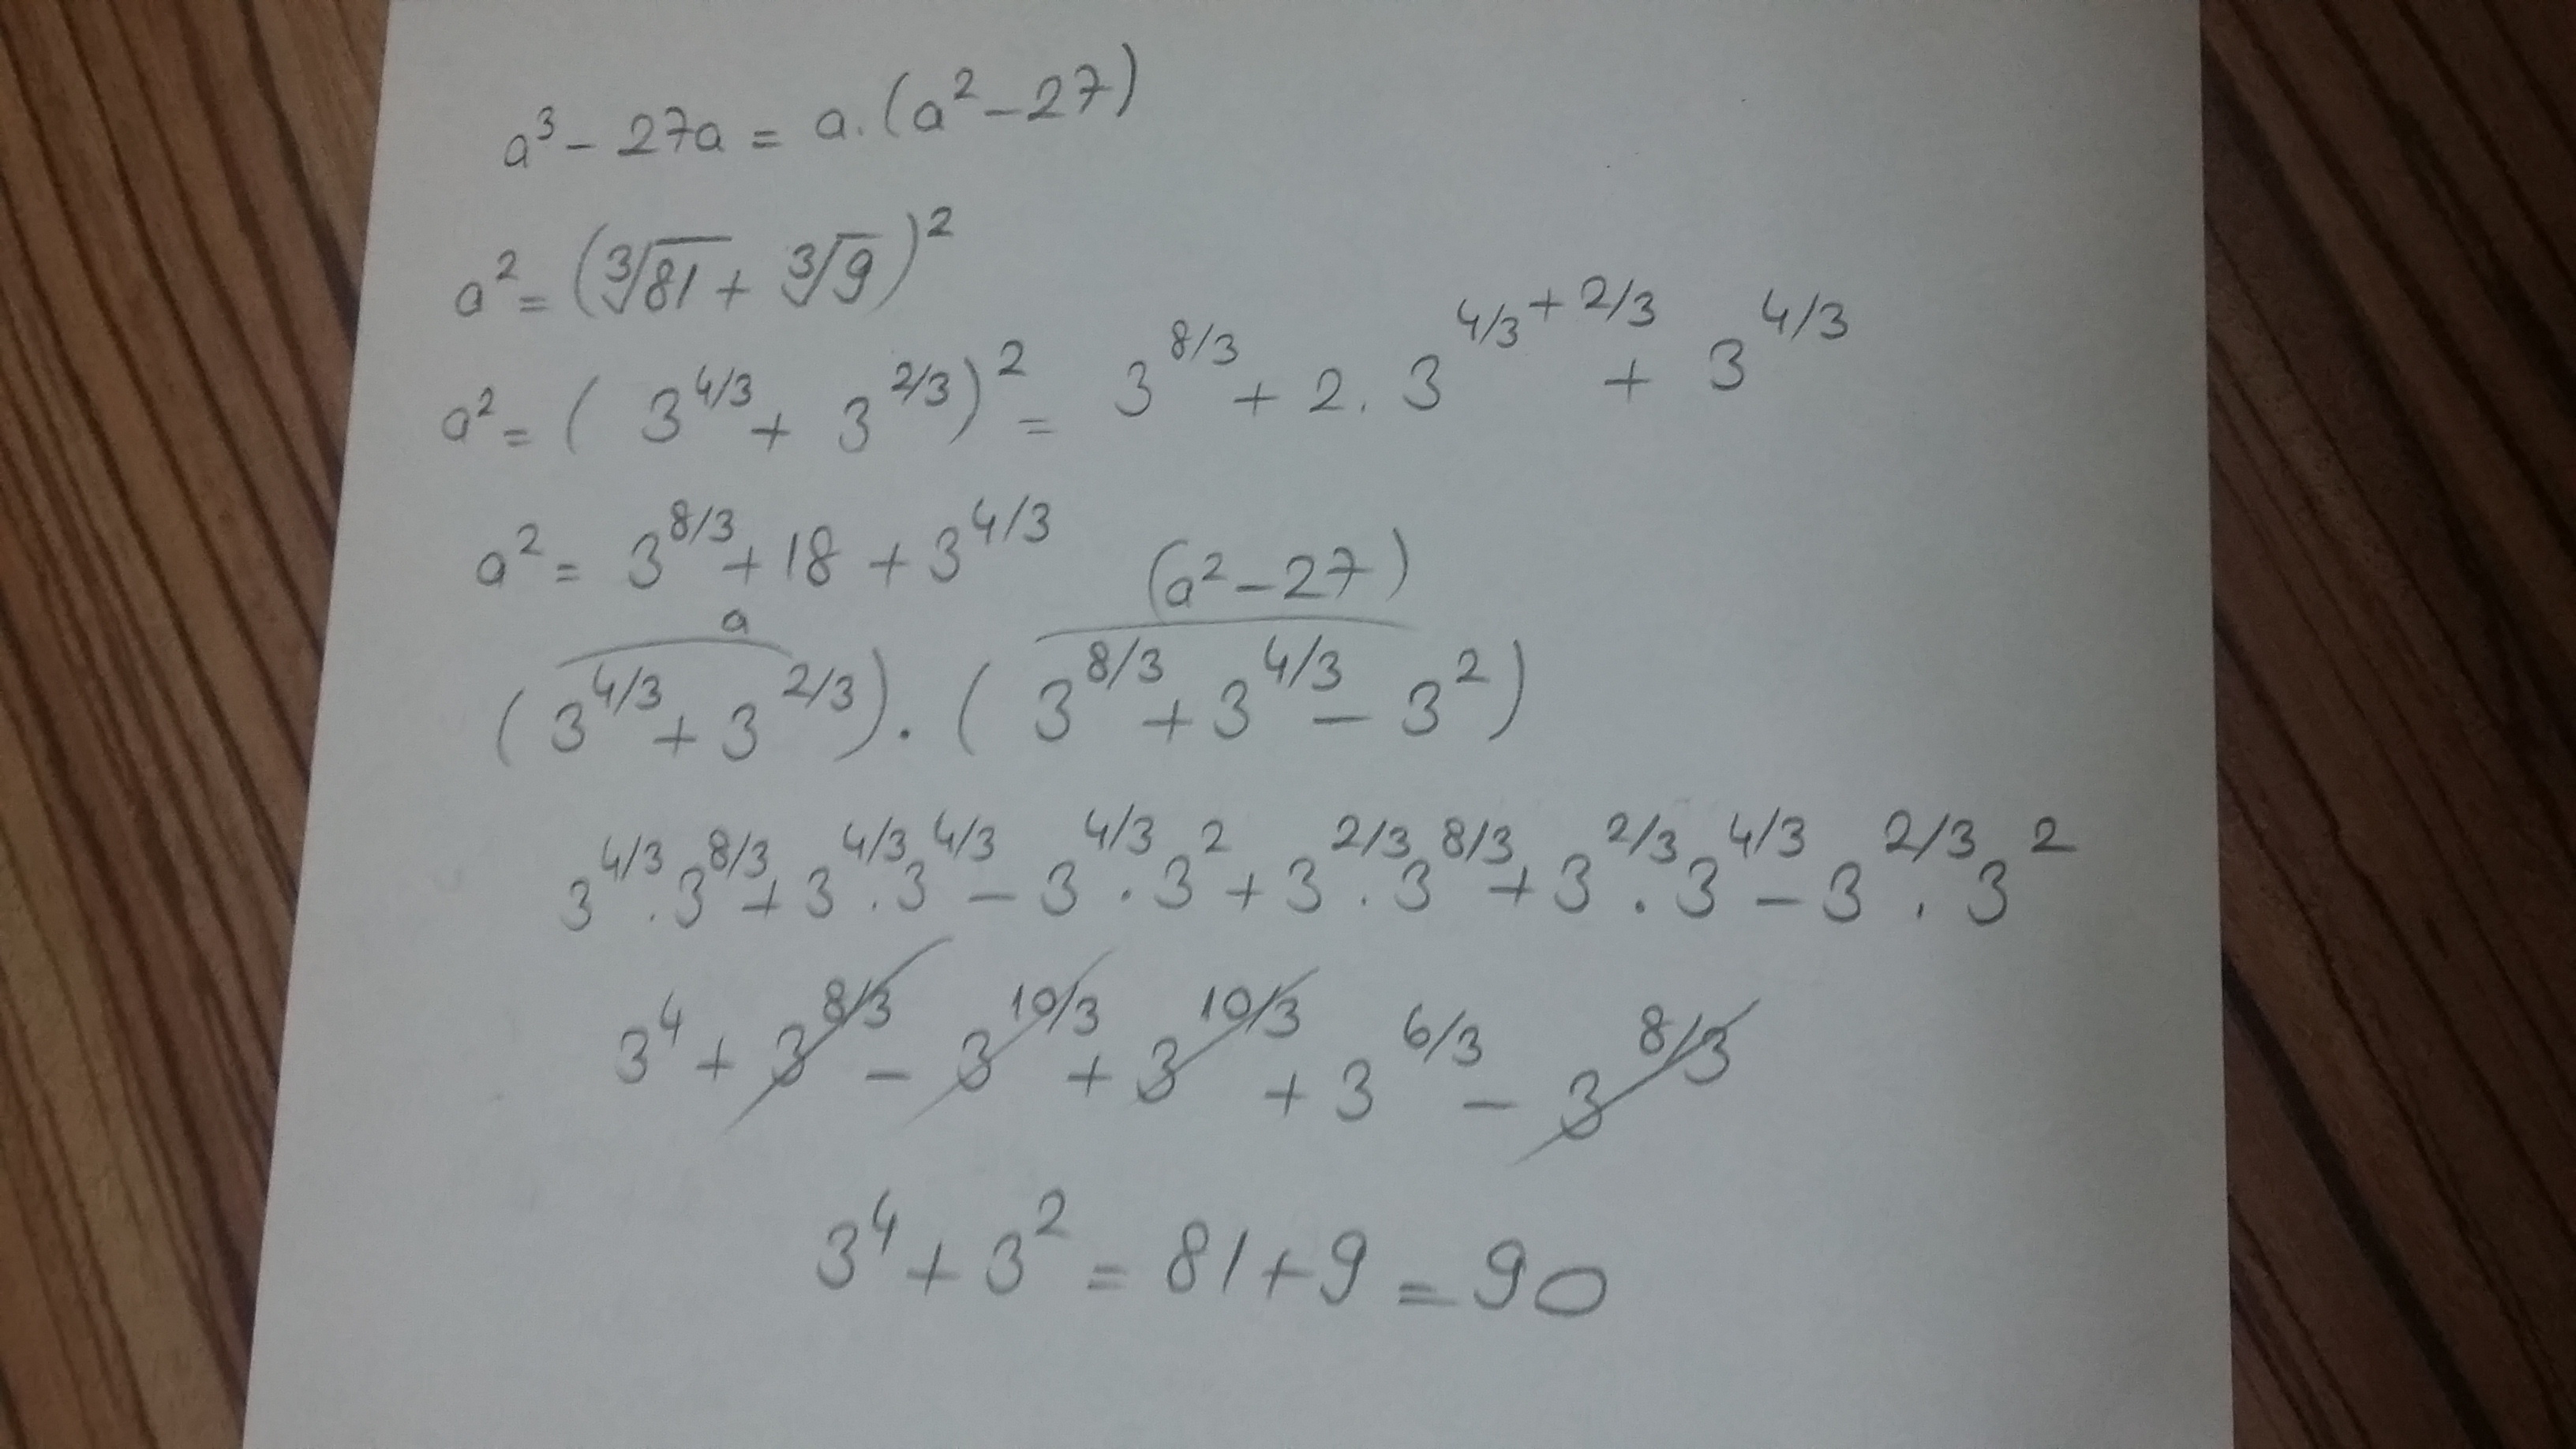 a³ - 27a = a.(a² - 27)
a² = (∛81 + ∛9)²
a² = (3^4/3 + 3^2/3)² = 3^8/3 + 2.3^4/3+2/3 + 3^4/3
a² = 3^8/3 + 18 + 3^4/3
a (a² - 27)
(3^4/3 + 3^2/3).(3^8/3 + 3^4/3 - 3²)
3^4/3.3^8/3 + 3^4/3.3^4/3 - 3^4/3.3² + 3^2/3.3^8/3 + 3^2/3.3^4/3 - 3^2/3.3²
3⁴ + 3^8/3 - 3^10/3 + 3^10/3 + 3^6/3 - 3^8/3
3⁴ + 3² = 81 + 9 = 90